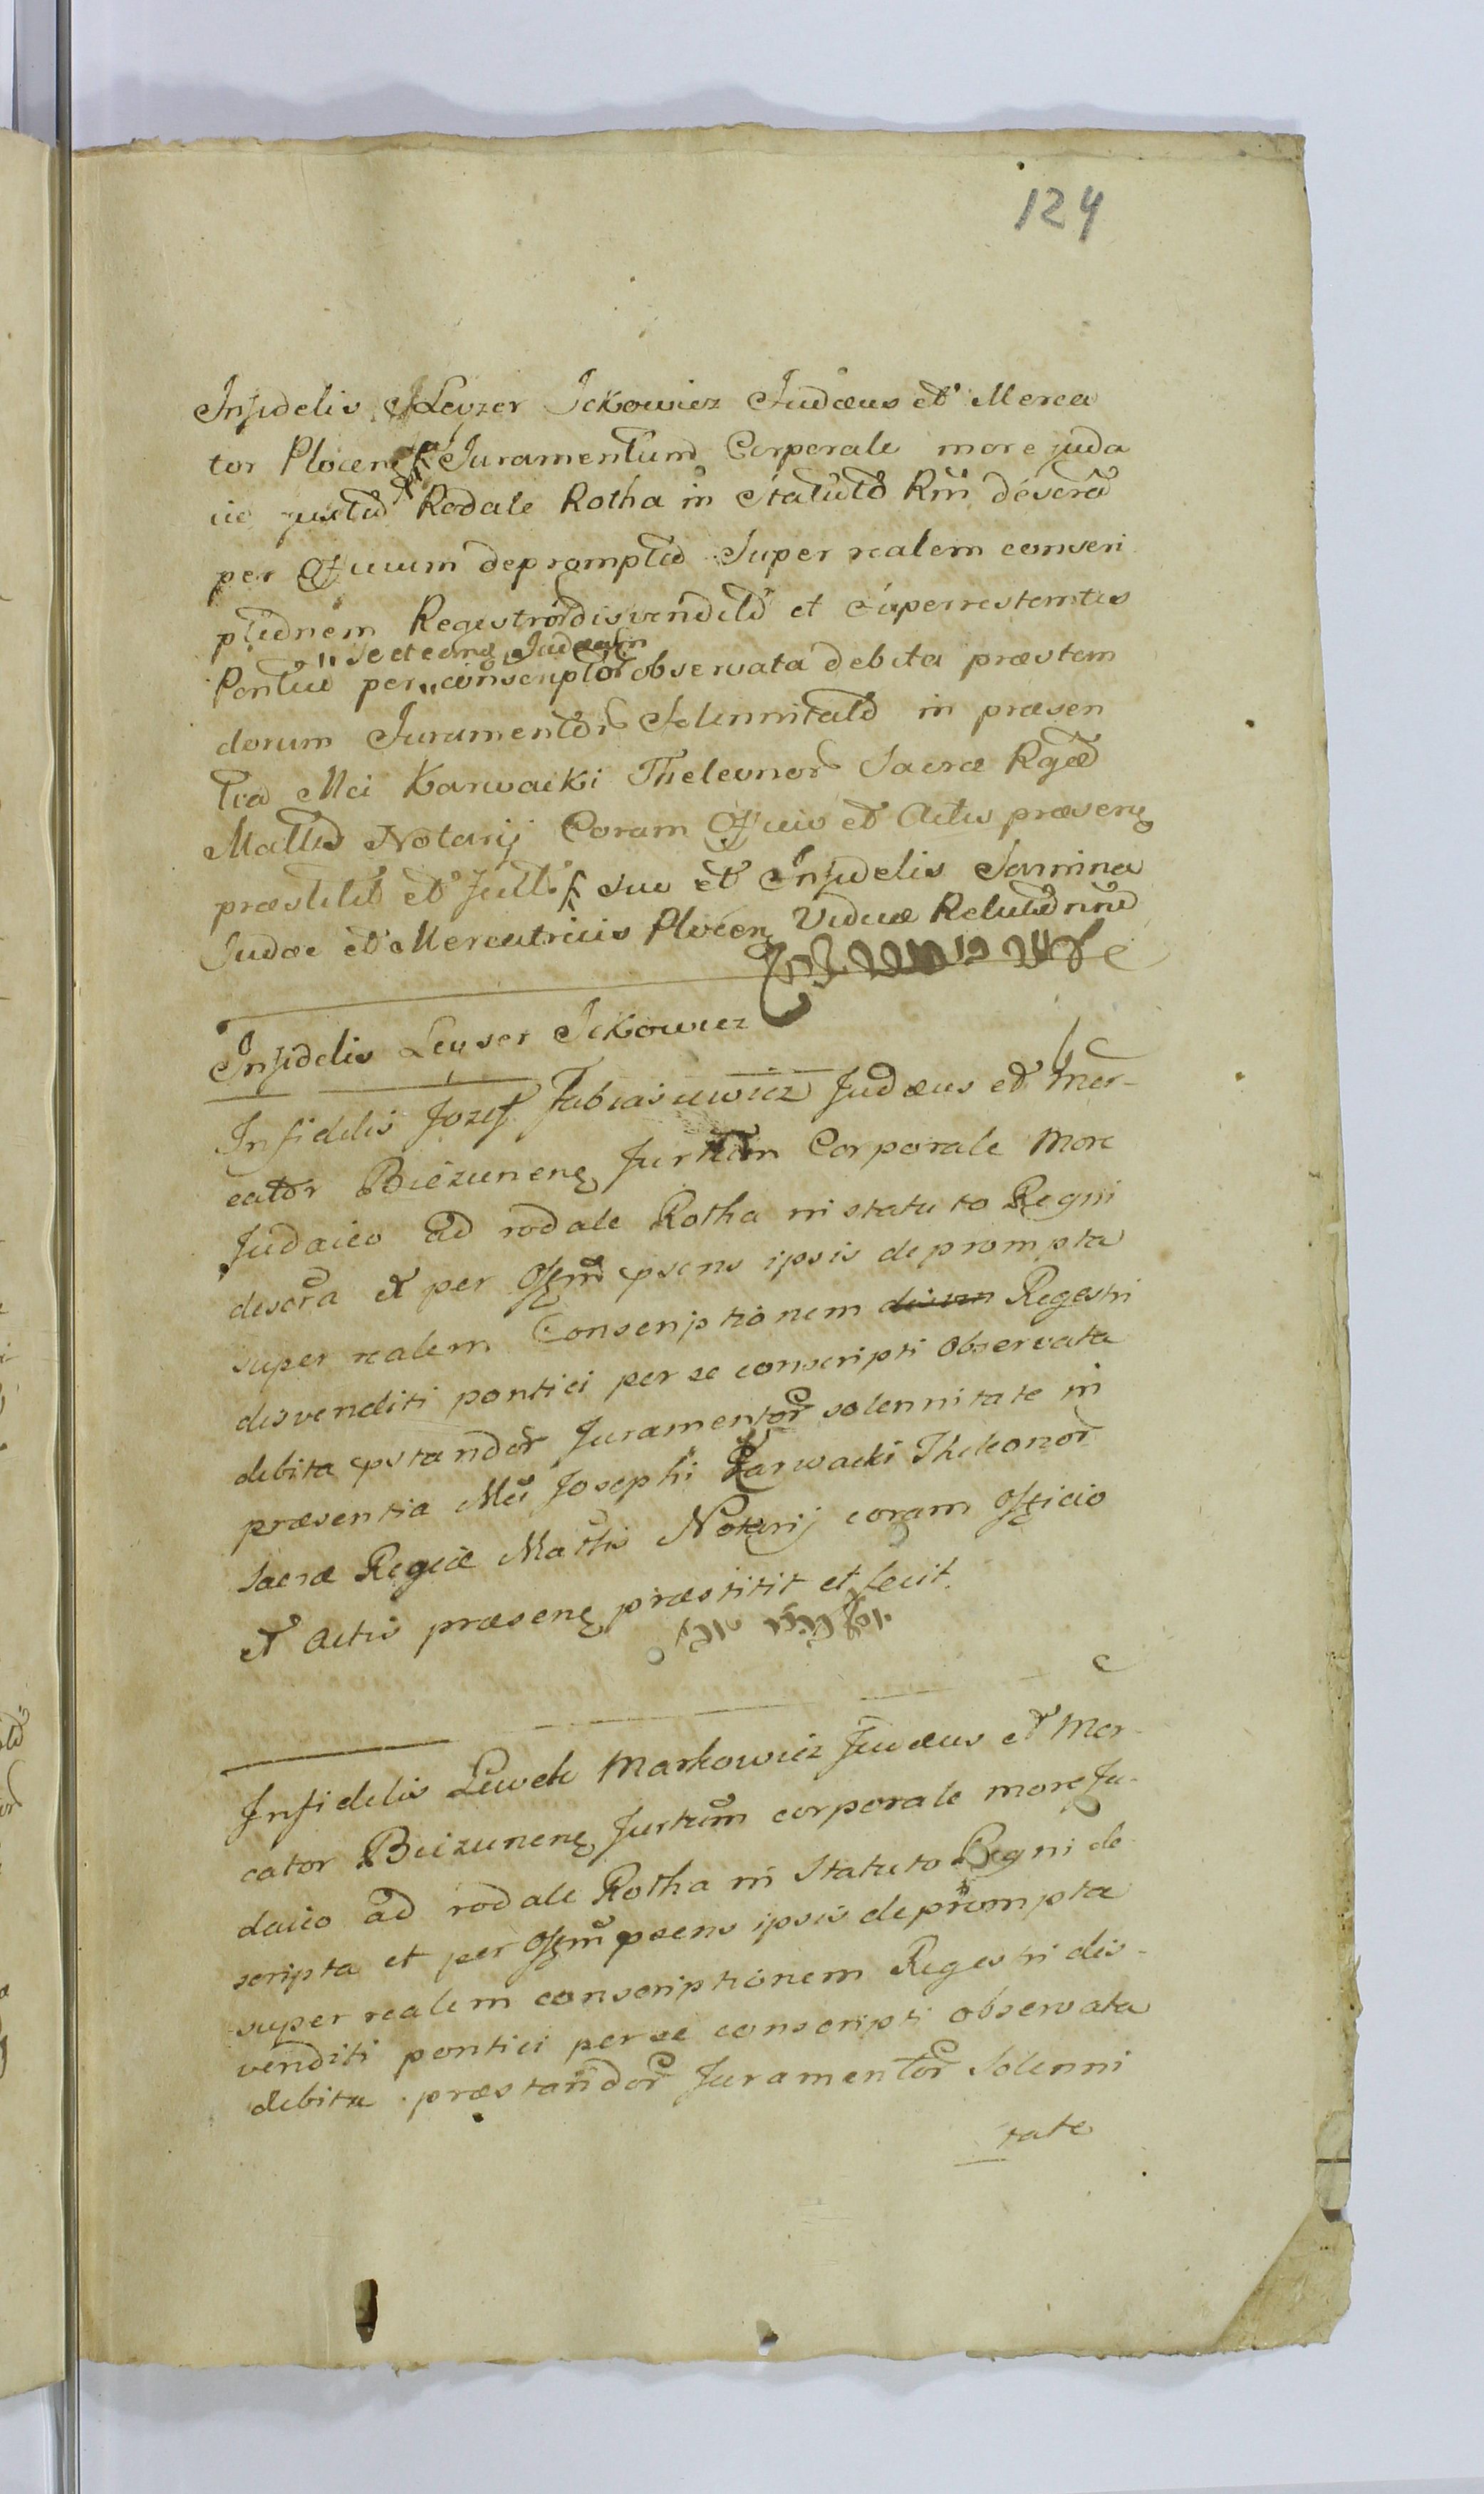 124
Infidelis Leyzer Ickowicz Judæus et Merca
tor Plocen Juramentum Corporale more juda
ico juxta Rodale Rotha in Statuto Rni descra
per Offium deprompta Super realem conscri
ptionem Regestror disvendit et superrestantis
se et eand Judæam
Pontici per conscriptor observata debita præstan
dorum Juramentor Solennitate in præsen
tia Mci Karwacki Theleonor Sacræ Rgæ
Mattis Notarij Coram Officio et Actis præsen
præstitit et fecit suo et Infidelis
Judæ et Mercatricis Plocen Viduæ Relictæ nne
Infidelis Leyser Ickowicz
Infidelis Jozef Fabiasiewicz Judæus et Mer-
cator Biezunen Jurtum Corporale More
Judaico ad rodale Rotha in statuto Regni
descra et per Offm psens ipsis deprompta
super realem Conscriptionem Regestri
disvenditi pontici per se conscripti observata
debita pstandor Juramentor solennitate in
præsentia Mci Josephi Karwacki Theleonor
Sacræ Regiæ Mattis Notarij coram Officio
et Actis præsen præstitit et fecit.
Infidelis Lewek Markowicz Judæus et Mer-
cator Biezunen Jurtum corporale more Ju-
daico ad rodale Rotha in Statuto Regni de
scripta et per Offm psens ipsis deprompta
super realem conscriptionem Regestri dis-
venditi pontici per se conscripti observata
debita præstandor Juramentor Solenni
tate